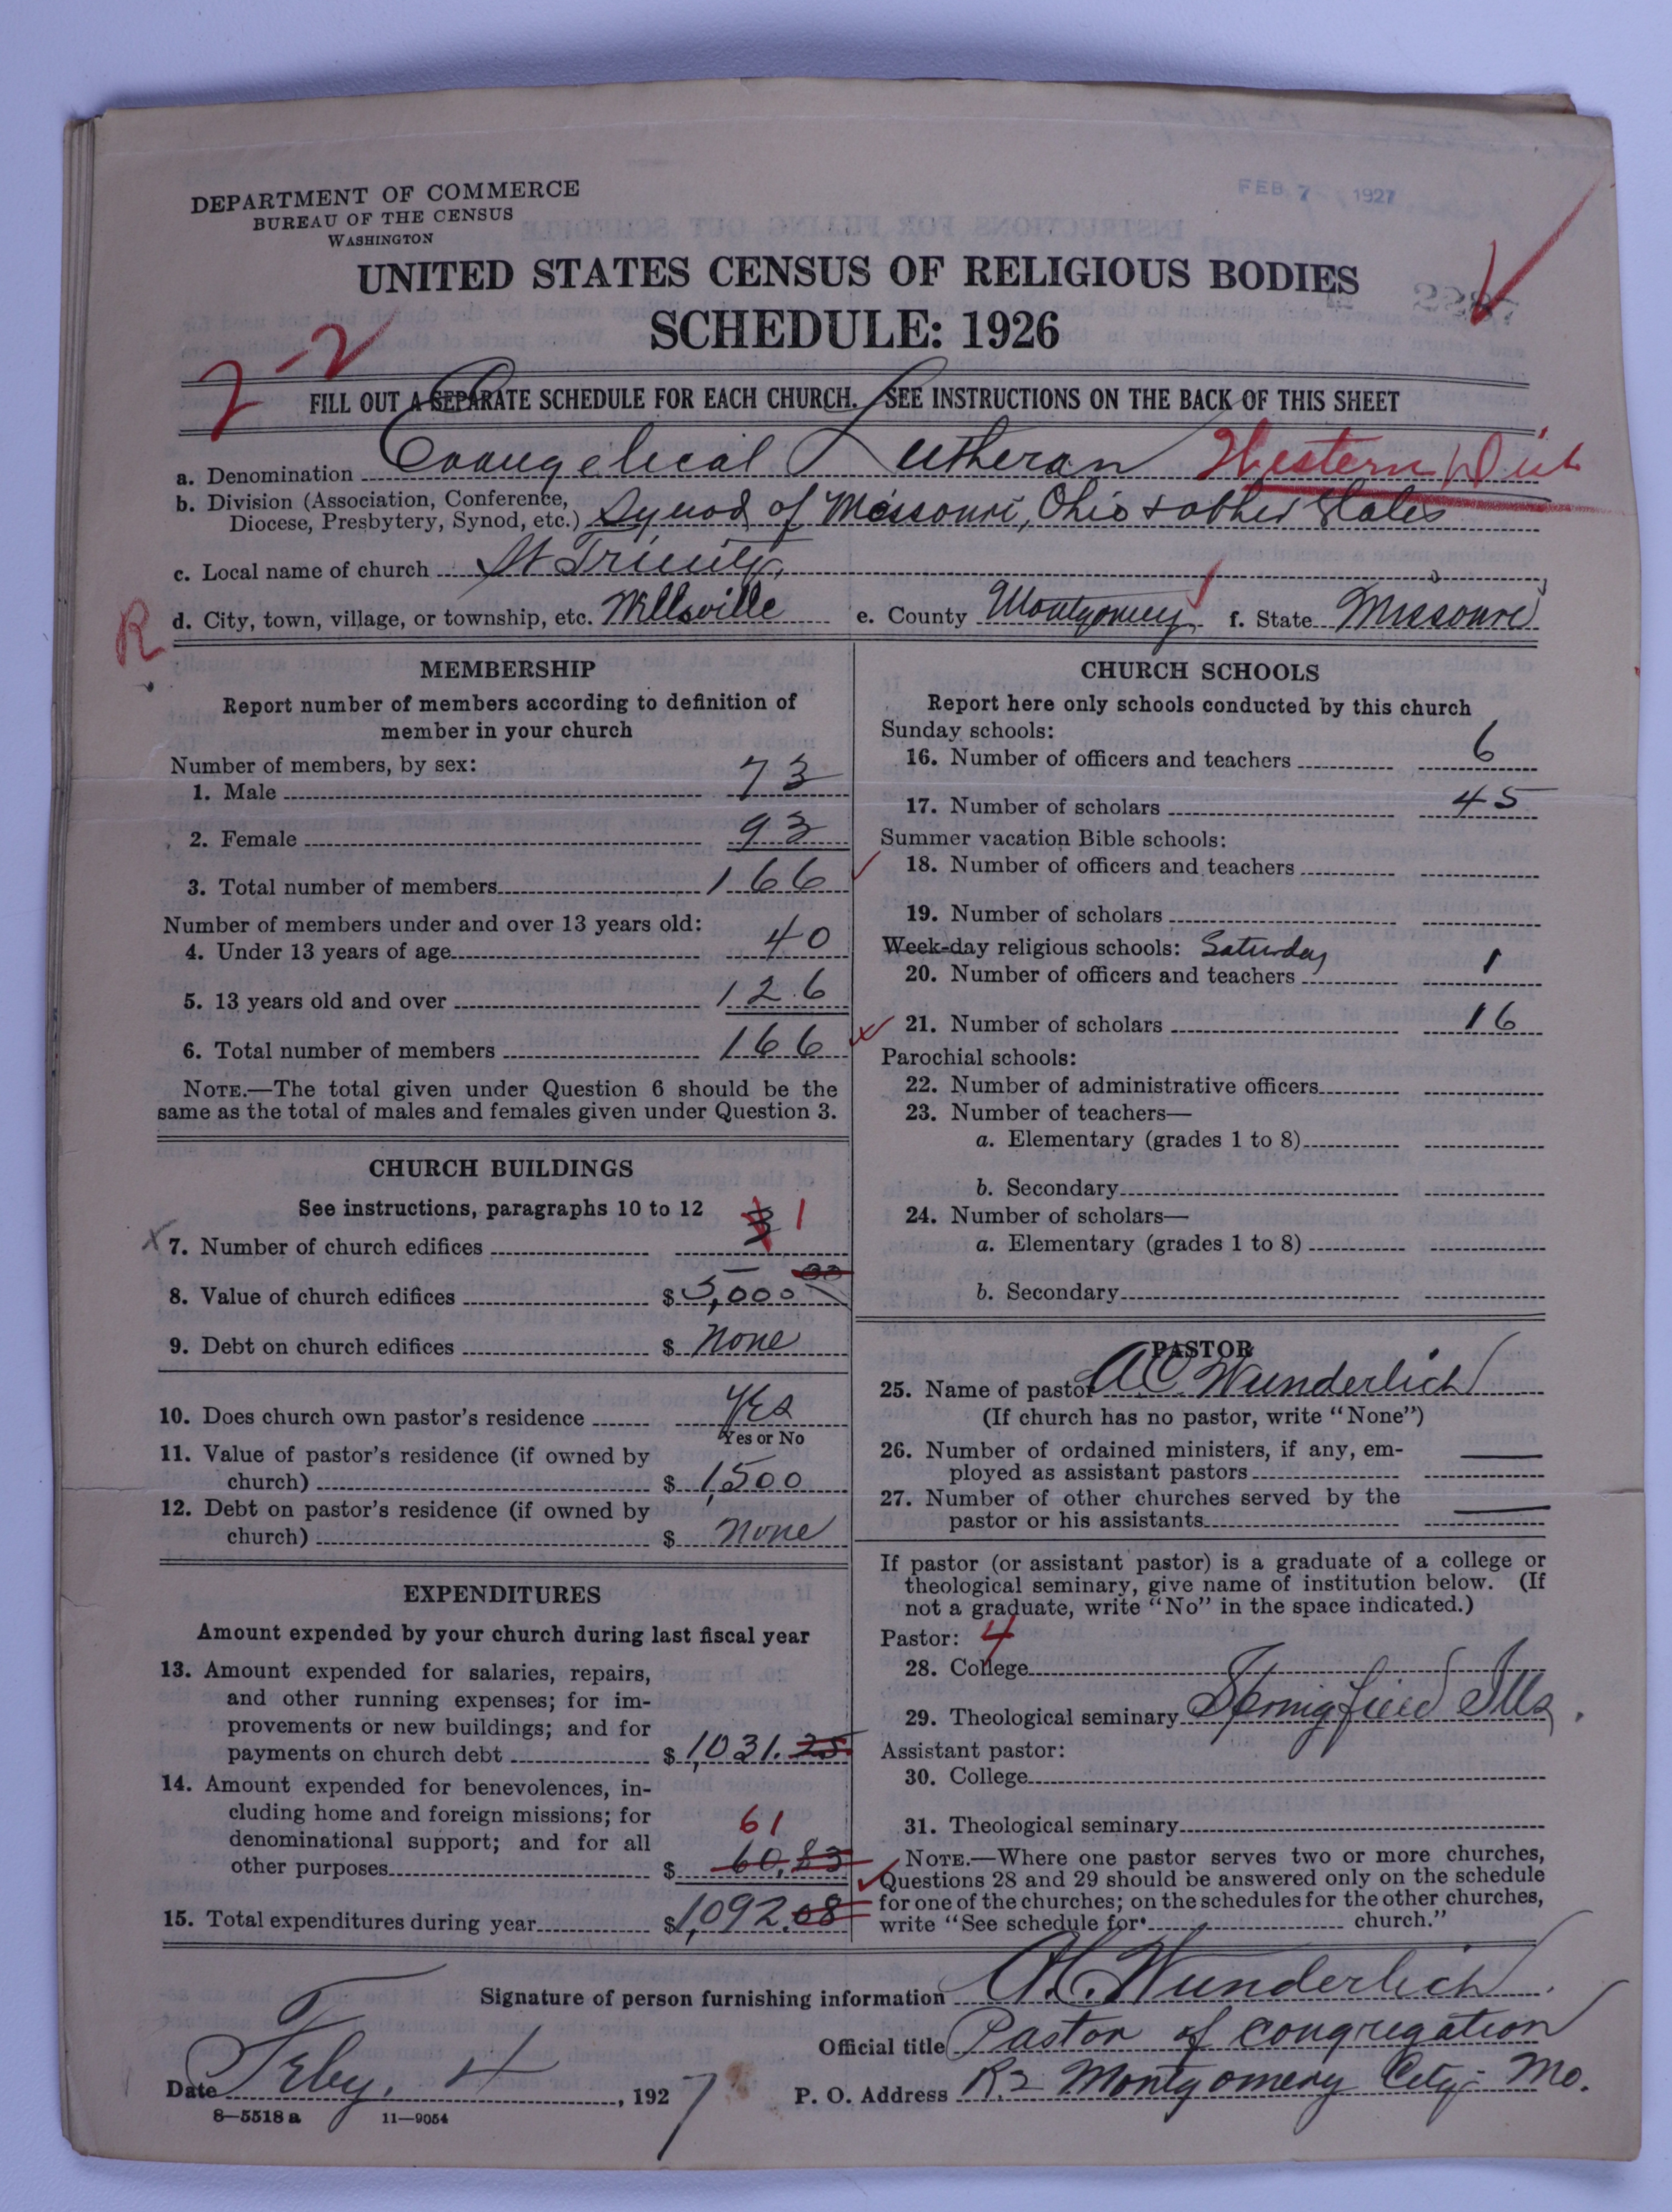 DEPARTMENT OF COMMERCE
BUREAU OF THE CENSUS
WASHINGTON
FEB 7 - 1927
UNITED STATES CENSUS OF RELIGIOUS BODIES
SCHEDULE: 1926
2-2
FILL OUT A SEPARATE SCHEDULE FOR EACH CHURCH. SEE INSTRUCTIONS ON THE BACK OF THIS SHEET
a. Denomination Evangelical Lutheran Western Dist
b. Division (Association, Conference,
Diocese, Presbytery, Synod, etc.) Synod of Missouri, Ohio & other States
c. Local name of church St Trinity
R
d. City, town, village, or township, etc. Wellsville e. County Montgomery f. State Missouri
MEMBERSHIP
Report number of members according to definition of
member in your church
Number of members, by sex:
1. Male 73
2. Female 93
3. Total number of members 166
Number of members under and over 13 years old:
4. Under 13 years of age 40
5. 13 years old and over 126
6. Total number of members 166
NOTE.—The total given under Question 6 should be the
same as the total of males and females given under Question 3.
CHURCH BUILDINGS
See instructions, paragraphs 10 to 12
7. Number of church edifices 3 1
8. Value of church edifices $ 5,000 00
9. Debt on church edifices $ None
10. Does church own pastor's residence Yes
Yes or No
11. Value of pastor's residence (if owned by
church) $ 1,500
12. Debt on pastor's residence (if owned by
church) $ None
EXPENDITURES
Amount expended by your church during last fiscal year
13. Amount expended for salaries, repairs,
and other running expenses; for im-
provements or new buildings; and for
payments on church debt $ 1,031.25
14. Amount expended for benevolences, in-
cluding home and foreign missions; for
denominational support; and for all
other purposes $ 60.83 61
15. Total expenditures during year $ 1,092.08
CHURCH SCHOOLS
Report here only schools conducted by this church
Sunday schools:
16. Number of officers and teachers 6
17. Number of scholars 45
Summer vacation Bible schools:
18. Number of officers and teachers
19. Number of scholars
Week-day religious schools: Saturday
20. Number of officers and teachers 1
21. Number of scholars 16
Parochial schools:
22. Number of administrative officers
23. Number of teachers—
a. Elementary (grades 1 to 8)
b. Secondary
24. Number of scholars—
a. Elementary (grades 1 to 8)
b. Secondary
PASTOR
25. Name of pastor A C Wunderlich
(If church has no pastor, write "None")
26. Number of ordained ministers, if any, em-
ployed as assistant pastors —
27. Number of other churches served by the
pastor or his assistants —
If pastor (or assistant pastor) is a graduate of a college or
theological seminary, give name of institution below. (If
not a graduate, write "No" in the space indicated.)
Pastor: 4
28. College
29. Theological seminary Springfield Ills.
Assistant pastor:
30. College
31. Theological seminary
NOTE.—Where one pastor serves two or more churches,
Questions 28 and 29 should be answered only on the schedule
for one of the churches; on the schedules for the other churches,
write "See schedule for church."
Signature of person furnishing information A.C. Wunderlich
Official title Pastor of congregation
Date Feby. 4, 1927 P. O. Address R.2 Montgomery City Mo.
8—5518 a 11—9054